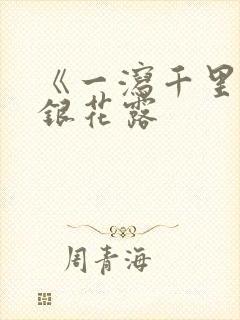 《一瀉千里
銀花露
周青海